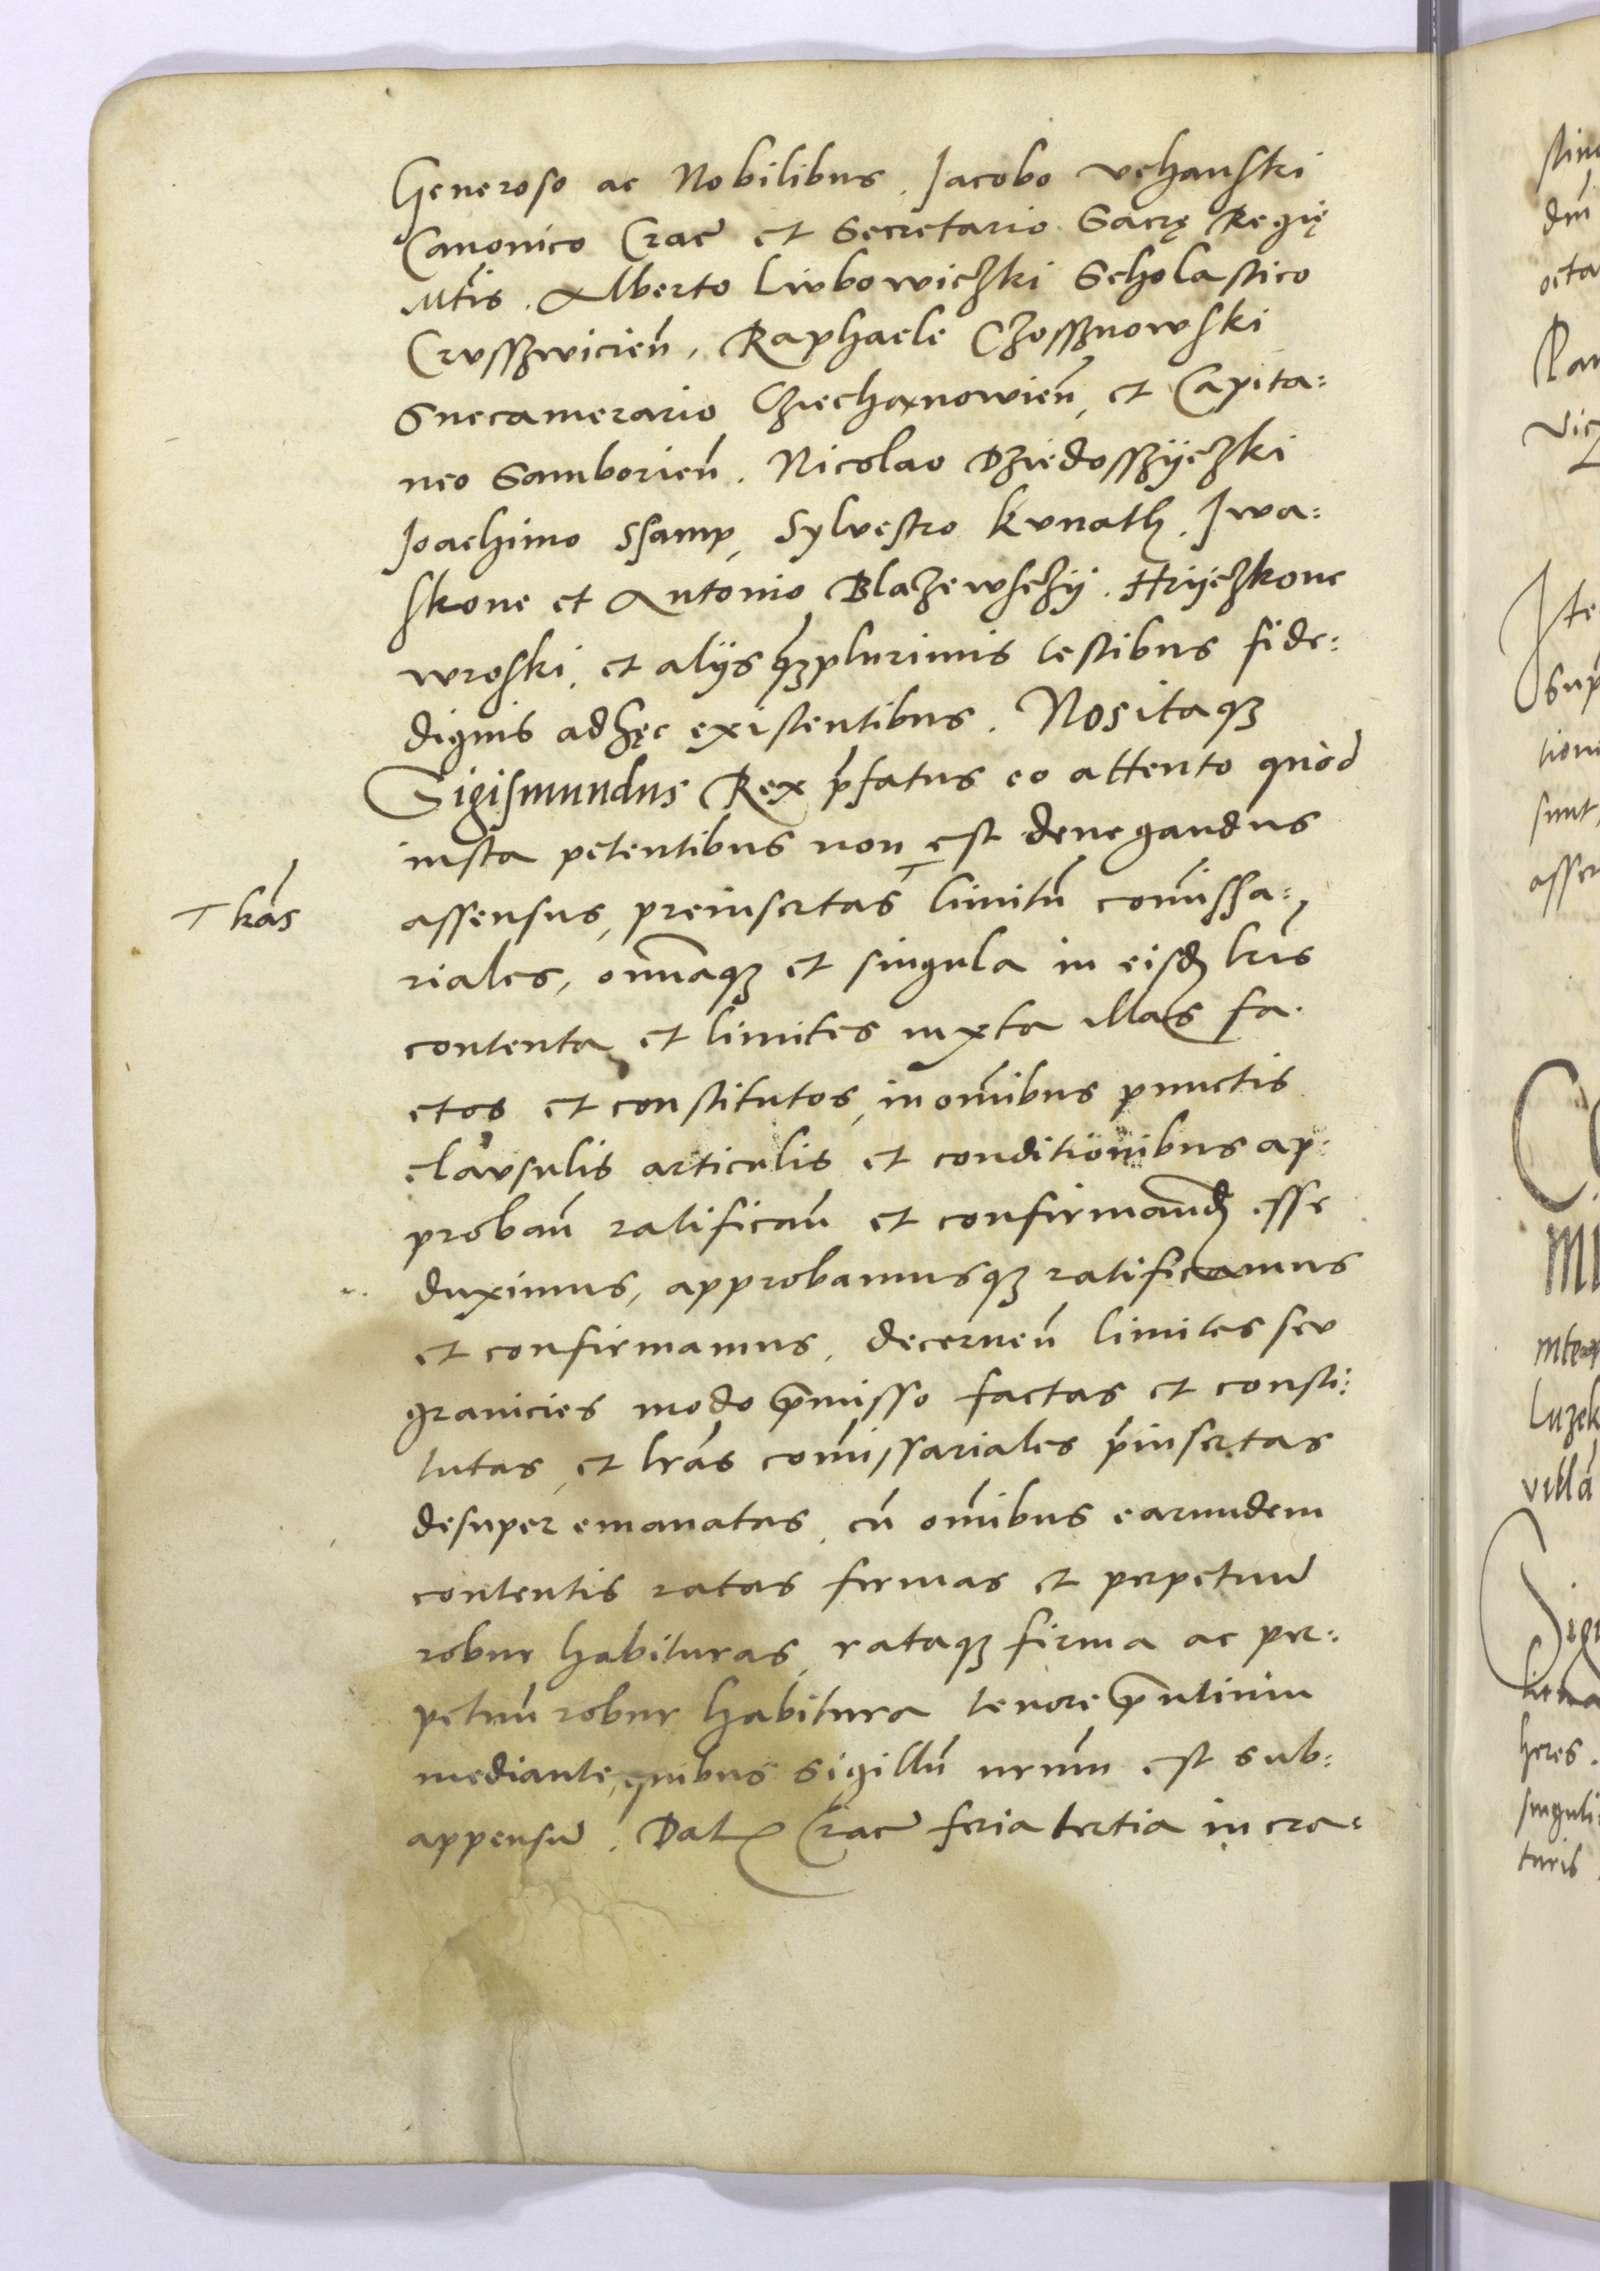 Generoso ac Nobilibus. Jacobo Vchanski
Canonico Crac̄ et Secretario Sacrę Regię
Mt̄is. Alberto Liubowieczki Scholastico
Crusszwicien̄, Raphaele Czosssznowski
Succamerario Cziechanowien̄, et Capita:
neo Samborien̄. Nicolao Dziedosszÿczki
Joachimo Ssamp, Sylvestro Kunath. Jwa:
skone et Antonio Blazewsczÿ. Hrÿczkone
wroski, et alÿs qꝫplurimis testibus fide:
dignis ad hęc existentibus. Nos itaqꝫ
Sigismundus Rex p̄fatus eo attento quòd
iusta petentibus non est denegandus
assensus, preinsertas limitū com̄issa:
riales, om̄iaqꝫ et singula in eisd̄ l̄ris
contenta et limites iuxta illas fa.
ctos et constitutos, in om̄ibus punctis
clausulis articulis et conditionibus ap:
proban̄ ratifican̄ et confirmand̄ esse
duximus, approbamusqꝫ ratificamus
et confirmamus, decernen̄ limites seu
granicies modo p̄misso factas et consti:
tutas, et l̄ras com̄issariales p̄insertas
desuper emanatas, cū om̄ibus earundem
contentis ratas firmas et perpetuū
robur habituras, rataqꝫ firma ac per:
petuū robur habitura tenore p̄ntium
mediante, quibus sigillū nrūm est sub:
appensū. Dat Crac̄ feria tertia in cra:
l̄ras